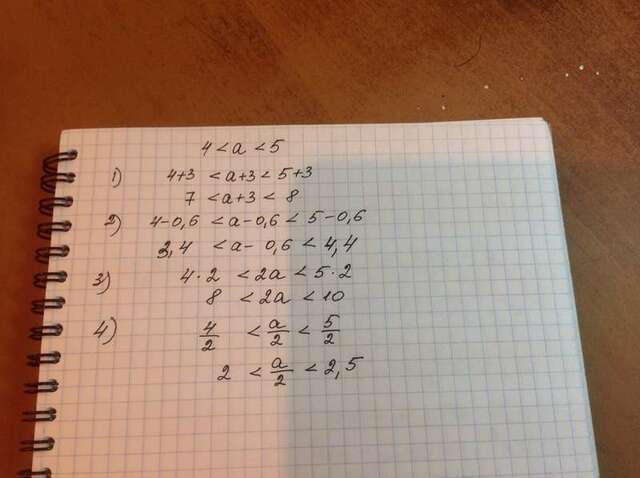 4 < a < 5
1) 4+3 < a+3 < 5+3
7 < a+3 < 8
2) 4-0,6 < a-0,6 < 5-0,6
3,4 < a-0,6 < 4,4
3) 4·2 < 2a < 5·2
8 < 2a < 10
4) 4/2 < a/2 < 5/2
2 < a/2 < 2,5